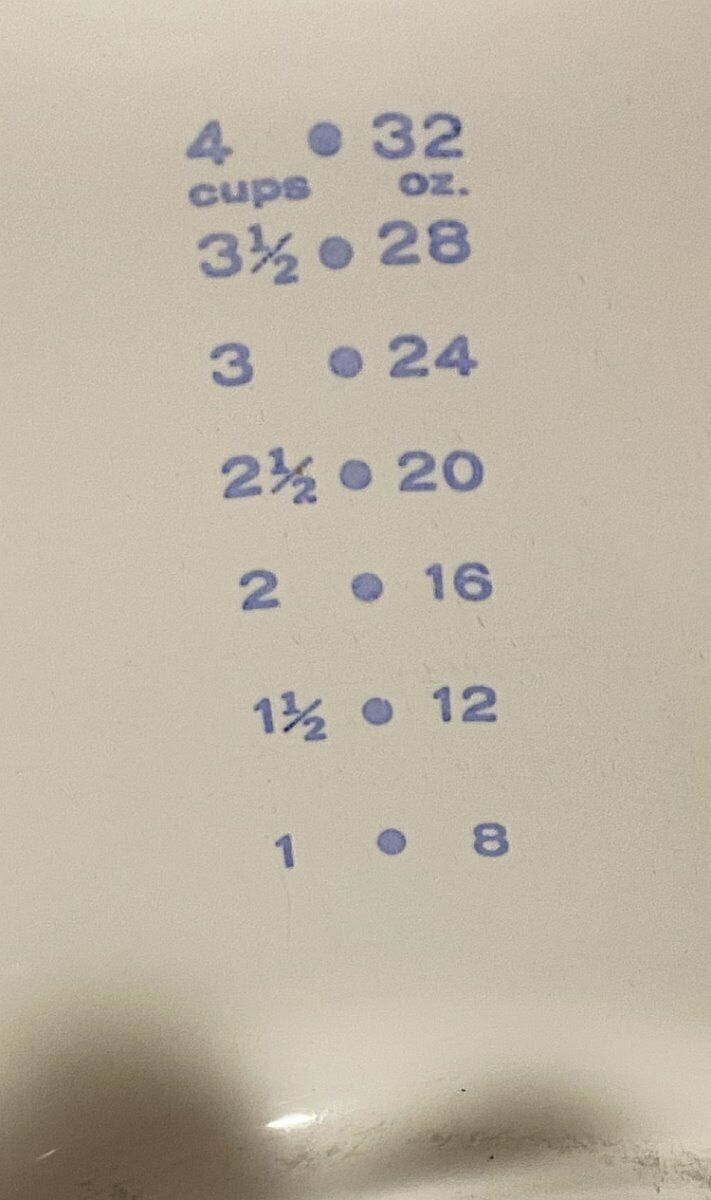 4 • 32
cups oz.
3½ • 28
3 • 24
2½ • 20
2 • 16
1½ • 12
1 • 8